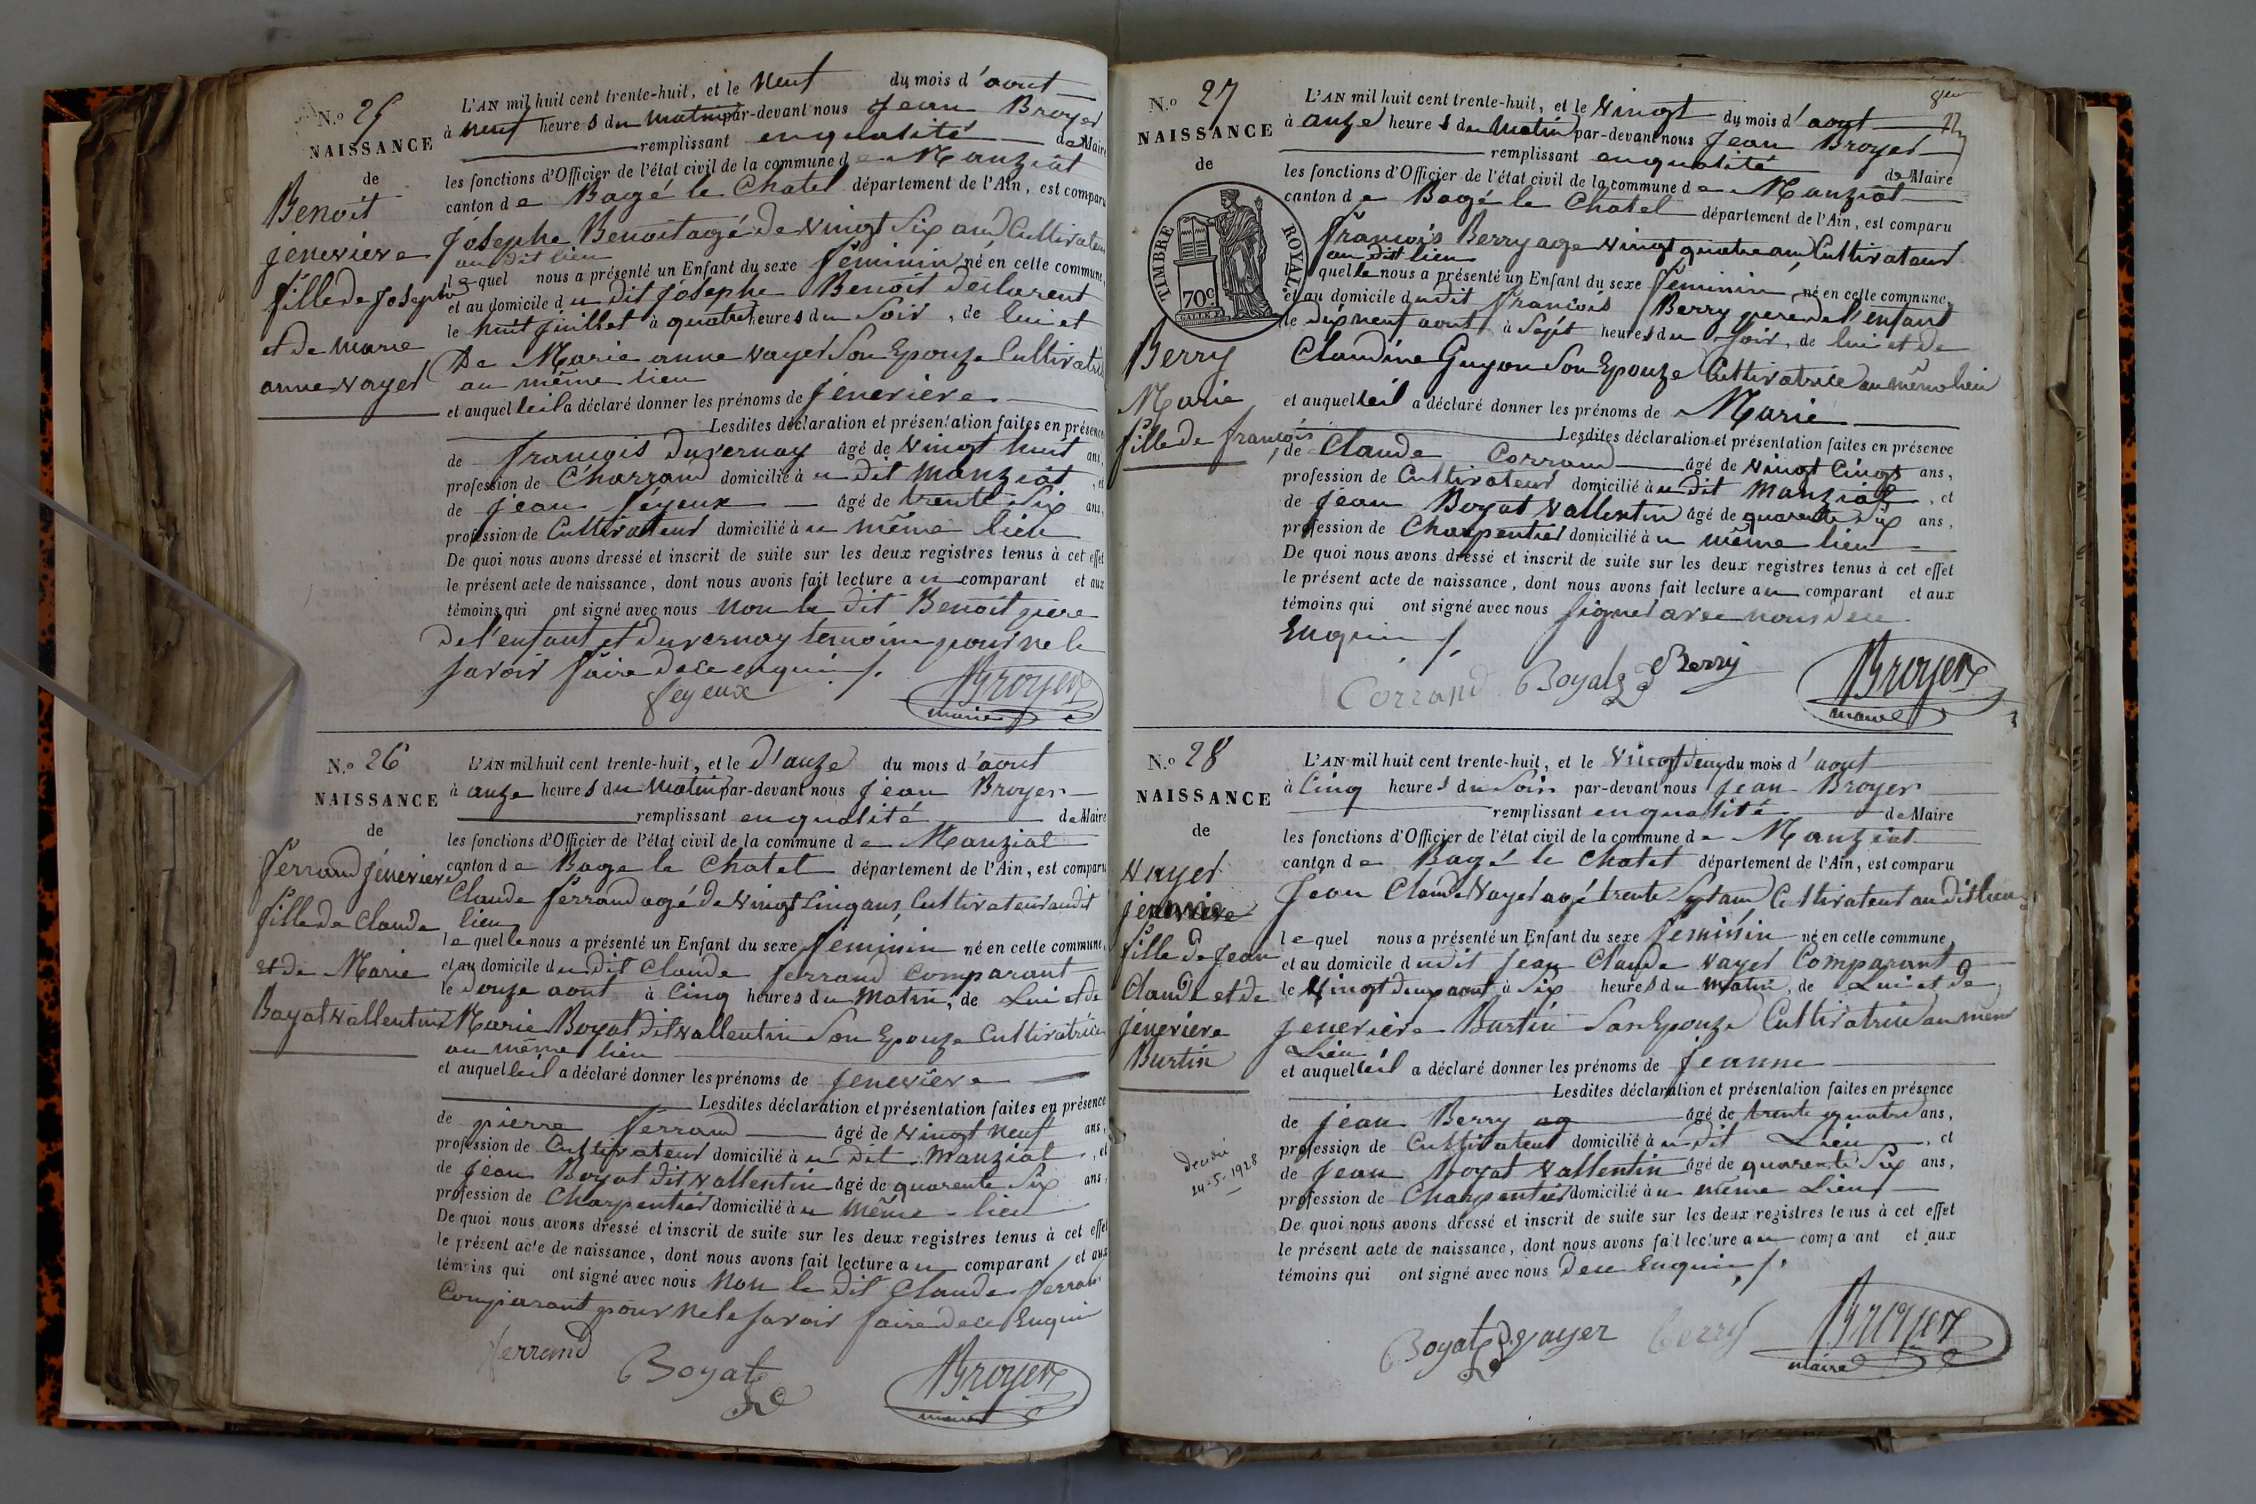 N.o 25
NAISSANCE
de
Benoit
jeneviere
fille de Joseph
et de marie
anne vayer
L'AN mil huit cent trente-huit, et le neuf du mois d'aout
à neuf heures du matin par-devant nous Jean Broyer
remplissant en qualité de Maire
les fonctions d'Officier de l'état civil de la commune de Manziat
canton de Bagé le Chatel département de l'Ain, est comparu
Josephe Benoit agé de vingt Six ans Cultivateur
au dit lieu
lequel nous a présenté un Enfant du sexe feminin né en cette commune,
et au domicile du dit Josephe Benoit declarent
le huit juillet à quatre heures du Soir, de lui et
De Marie anne vayer Son Epouze Cultivatrice
au même lieu
et auquel leil a déclaré donner les prénoms de jeneviere
Lesdites déclaration et présentation faites en présence
de françois Duvernay âgé de vingt huit ans,
profession de Charrand domicilié au dit manziat, et
de Jean feyeux âgé de trente Six ans,
profession de Cultivateur domicilié au même lieu
De quoi nous avons dressé et inscrit de suite sur les deux registres tenus à cet effet
le présent acte de naissance, dont nous avons fait lecture au comparant et aux
témoins qui ont signé avec nous Non le dit Benoit pere
de l'enfant et duvernay temoin pour ne le
savoir faire de ce enqui ./.
feyeux
Broyer
maire
N.o 26
NAISSANCE
de
ferrand jeneviere
fille de Claude
et de Marie
Bayat vallentin
L'AN mil huit cent trente-huit, et le d'auze du mois d'aout
à auze heures du matin par-devant nous Jean Broyer
remplissant en qualité de Maire
les fonctions d'Officier de l'état civil de la commune de Manziat
canton de Bage le Chatel département de l'Ain, est comparu
Claude ferrand agé de vingt Cinq ans, Cultivateur au dit
lieu
lequel le nous a présenté un Enfant du sexe feminin né en cette commune,
et au domicile du dit Claude ferrand Comparant
le douze aout à Cinq heures du Matin, de Lui et de
Marie Boyat dit vallentin Son Epouze Cultivatrice
au même lieu
et auquel leil a déclaré donner les prénoms de jeneviere
Lesdites déclaration et présentation faites en présence
de pierre ferrand âgé de vingt neuf ans,
profession de Cultivateur domicilié au dit Manziat, et
de Jean Boyat dit vallentin âgé de quarente Six ans,
profession de Charpentier domicilié au même lieu
De quoi nous avons dressé et inscrit de suite sur les deux registres tenus à cet effet
le présent acte de naissance, dont nous avons fait lecture au comparant et aux
témoins qui ont signé avec nous Non le dit Claude ferrand
Comparant pour ne le Savoir faire de ce Enqui
ferrand
Boyat
Broyer
maire
N.o 27
NAISSANCE
de
TIMBRE ROYAL.
70c
Berry
Marie
fille de françois
L'AN mil huit cent trente-huit, et le vingt du mois d'aout
à auze heures du Matin par-devant nous Jean Broyer
remplissant en qualité de Maire
les fonctions d'Officier de l'état civil de la commune de Manziat
canton de Bagé le Chatel département de l'Ain, est comparu
françois Berry age vingt quatre ans Cultivateur
au dit lieu
lequel le nous a présenté un Enfant du sexe feminin, né en cette commune,
et au domicile du dit françois Berry pere de l'enfant
le dix neuf aout à Sept heures du Soir, de lui et de
Claudine Guyon Son Epouze Cultivatrice au même lieu
et auquel leil a déclaré donner les prénoms de Marie
Lesdites déclaration et présentation faites en présence
de Claude Corrand âgé de vingt Cinq ans,
profession de Cultivateur domicilié au dit Manziat, et
de Jean Boyat Vallentin âgé de quarente Six ans,
profession de Charpentier domicilié au même lieu
De quoi nous avons dressé et inscrit de suite sur les deux registres tenus à cet effet
le présent acte de naissance, dont nous avons fait lecture au comparant et aux
témoins qui ont signé avec nous Signer avec nous de ce
Enquin ./.
Corrand Boyat Berry
Broyer
maire
N.o 28
NAISSANCE
de
Vayer
fille de Jean
Claude et de
jeneviere
Burtin
24-5-1928
L'AN mil huit cent trente-huit, et le vingt deux du mois d'aout
à Cinq heures du Soir par-devant nous Jean Broyer
remplissant en qualité de Maire
les fonctions d'Officier de l'état civil de la commune de Manziat
canton de Bagé le Chatel département de l'Ain, est comparu
Jean Claude Vayer agé trente Sept ans Cultivateur au dit lieu
lequel nous a présenté un Enfant du sexe feminin né en cette commune,
et au domicile du dit Jean Claude Vayer Comparant
le Vingt deux aout à Six heures du Matin, de Lui et de
Jeneviere Burtin Son Epouze Cultivatrice au meme
Lieu
et auquel leil a déclaré donner les prénoms de jeanne
Lesdites déclaration et présentation faites en présence
de Jean Berry ag âgé de trente quatre ans,
profession de Cultivateur domicilié au dit Lieu, et
de Jean Boyat vallentin âgé de quarente Six ans,
profession de Charpentier domicilié au même Lieu
De quoi nous avons dressé et inscrit de suite sur les deux registres tenus à cet effet
le présent acte de naissance, dont nous avons fait lecture au comparant et aux
témoins qui ont signé avec nous de ce Enquin ./.
Boyat vayer berry
Broyer
maire